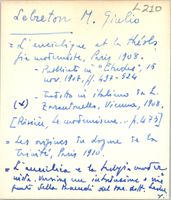 L210
Lebreton M. Giulio
= L'enciclique et la théolo
gie moderniste, Paris 1908.
- Publié in "Études" 15
nov. 1907, p. 498-524
- Tradotto in italiano da L.
(+) Vienna, 1908.
[Rivière, Le modernisme... p. 473]
= Les origines du dogme de la
Trinité, Paris 1910.
= L'enciclica e la teologia moder
nista. Versione con introduzione e